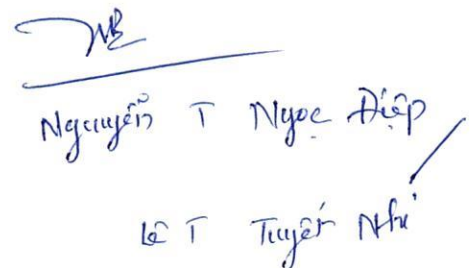 Nguyễn T Ngọc Điệp
Lê T Tuyết Như